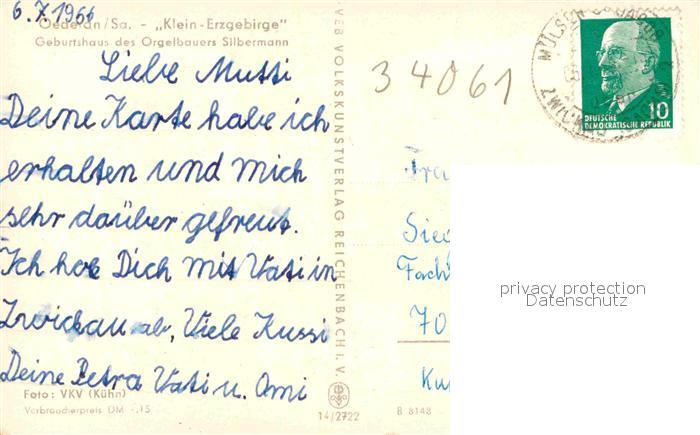 6.7.1966
Oederan/Sa. - „Klein-Erzgebirge"
Geburtshaus des Orgelbauers Silbermann
Liebe Mutti
Deine Karte habe ich
erhalten und mich
sehr daüber gefreut.
Ich hole Dich mit Vati in
Zwickau ab, Viele Kussi
Deine Petra Vati u. Omi
Foto: VKV (Kühn)
Verbraucherpreis DM -,15
VEB VOLKSKUNSTVERLAG REICHENBACH i. V.
14/2722
B 8148
34061
MÜLSEN ST JACOB
ZWICKAU
10
DEUTSCHE
DEMOKRATISCHE REPUBLIK
Frau
Sieg
Fach
70
Ku
privacy protection
Datenschutz